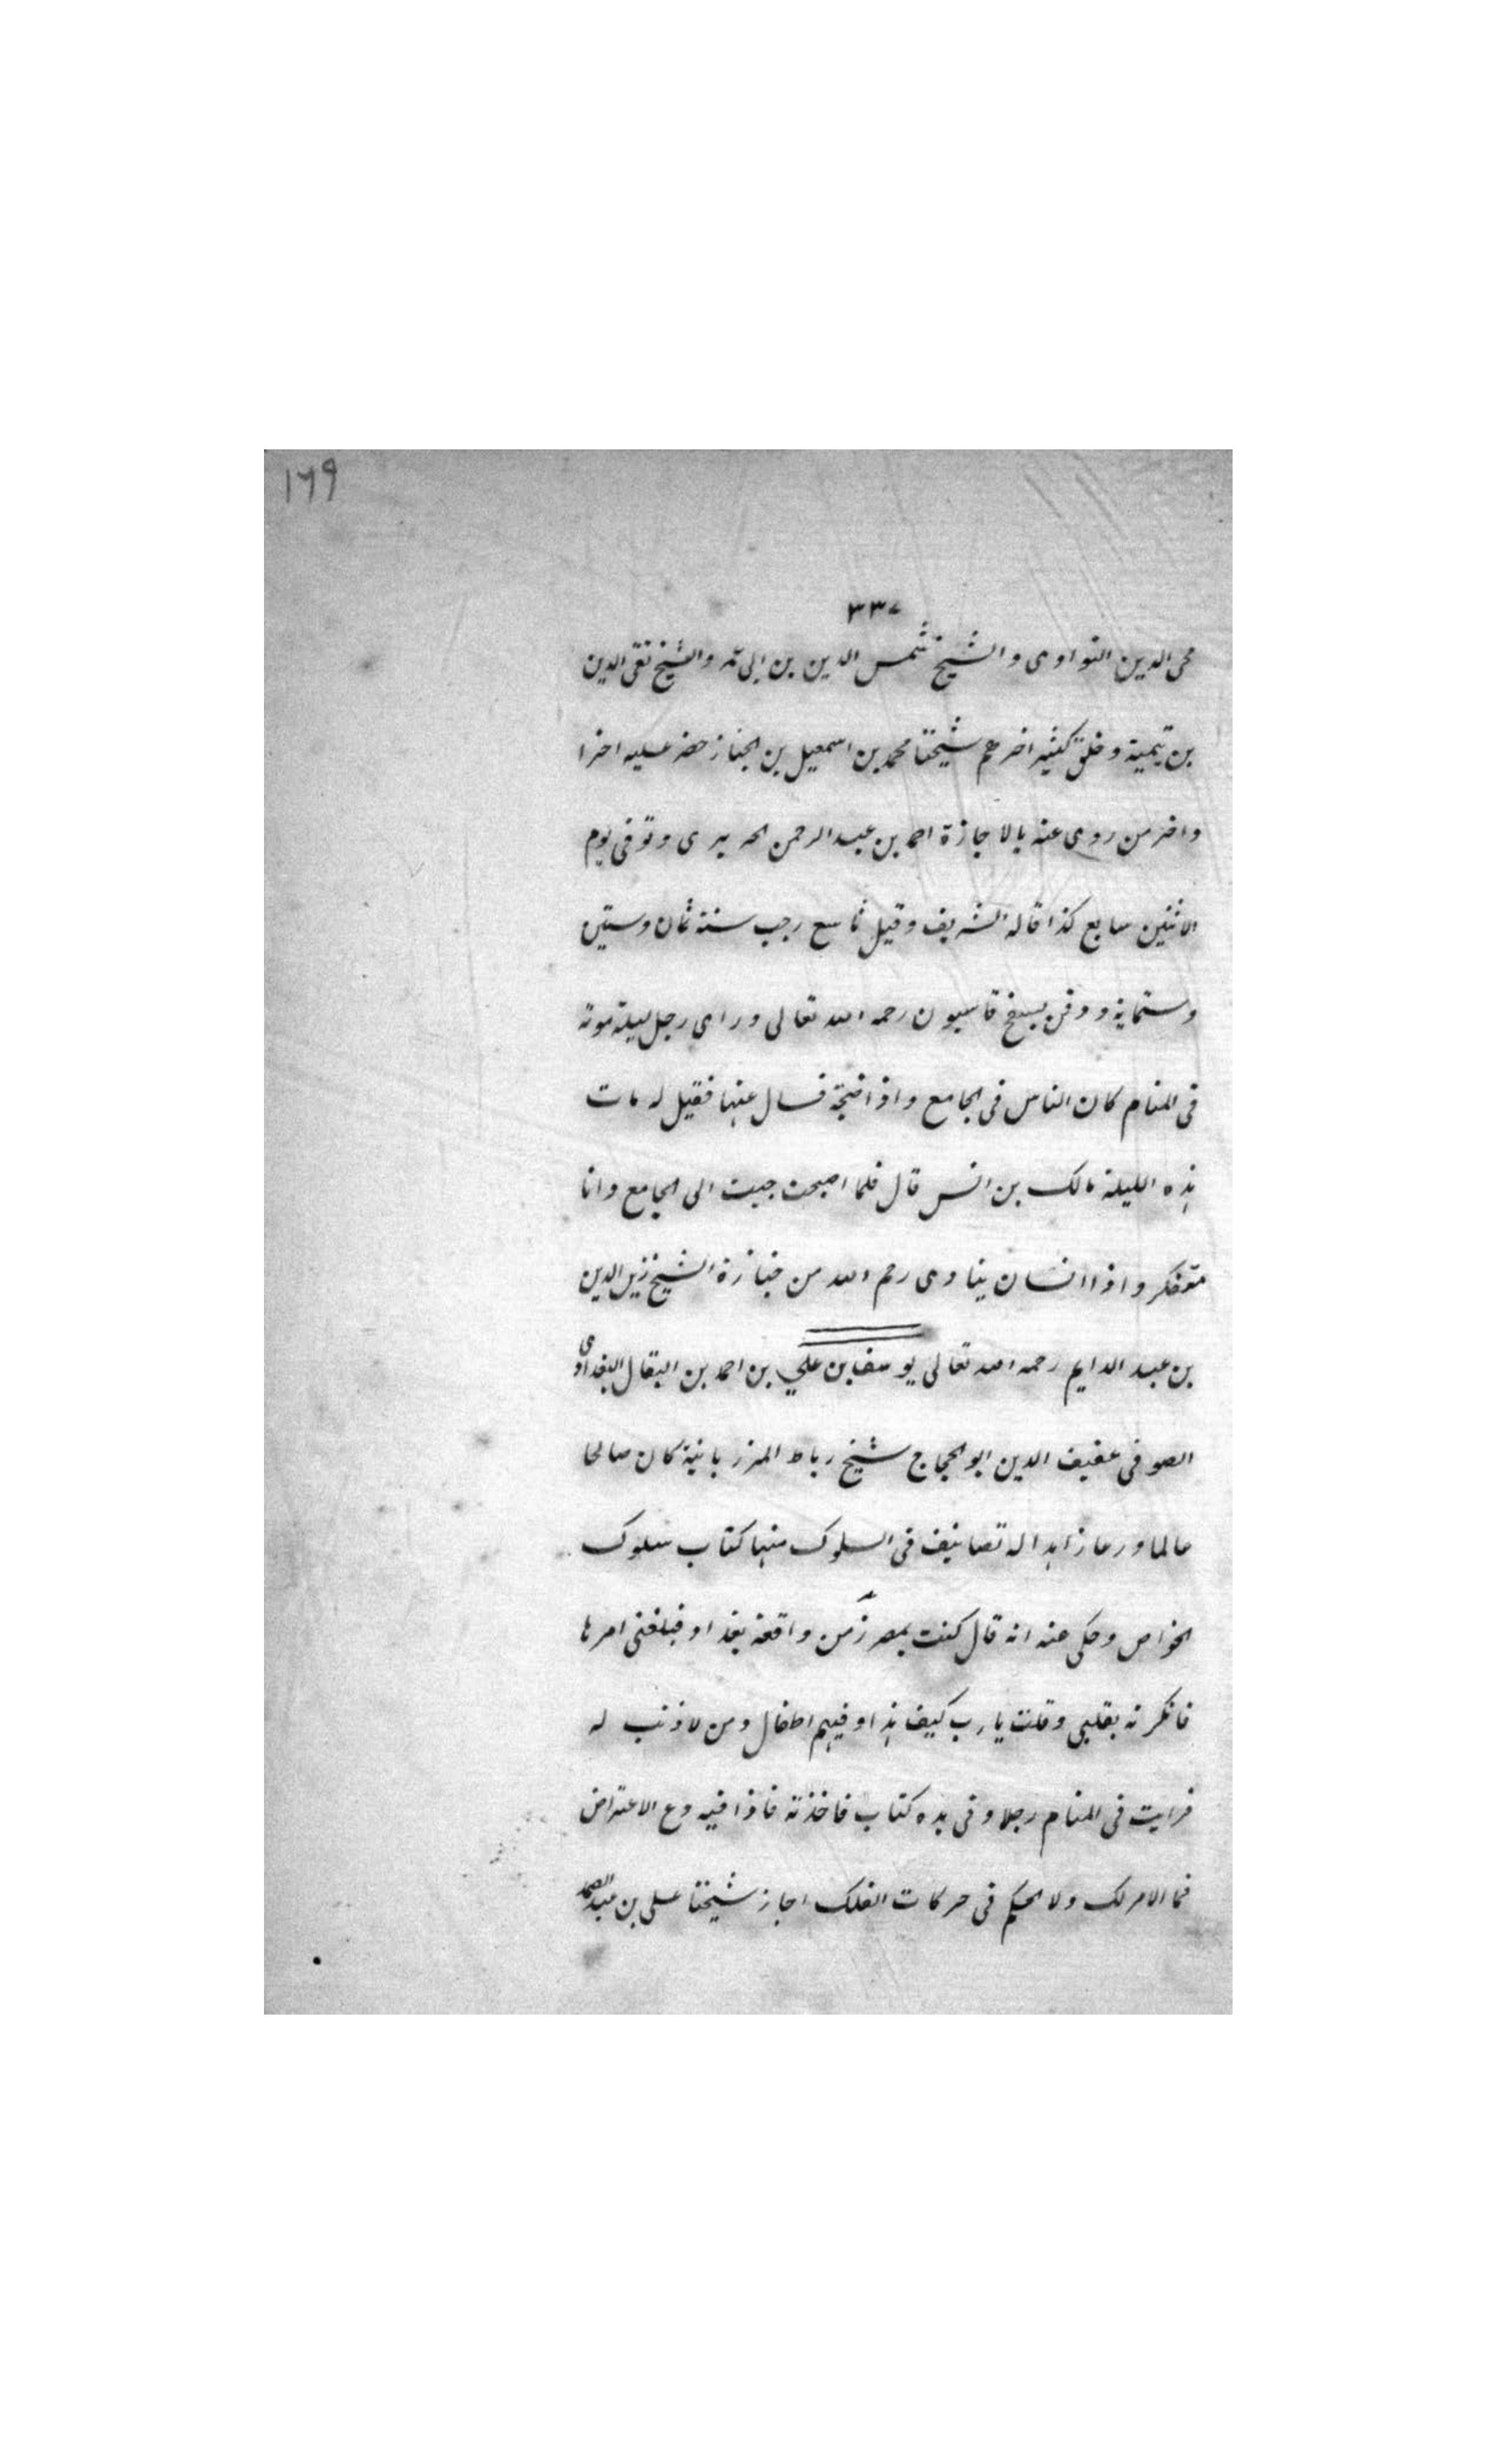 ١٦٩
٣٣٧
محى الدين النواوى والشيخ شمس الدين بن ابى عمر والشيخ تقى الدين
بن تيمية وخلق كثير اخرهم شيخنا محمد بن اسمعيل بن الخباز حضر عليه اخرا
واخر من روى عنه بالاجازة احمد بن عبد الرحمن الحريرى وتوفى يوم
الاثنين سابع كذا قاله الشريف وقيل تاسع رجب سنة ثمان وستين
وستماية ودفن بسفح قاسيون رحمه الله تعالى وراى رجل ليلة موته
فى المنام كان الناس فى الجامع واذا ضجة فسال عنها فقيل له مات
هذه الليلة مالك بن انس قال فلما اصبحت جيت الى الجامع وانا
متفكر واذا انسان ينادى رحم الله من جنازة الشيخ زين الدين
بن عبد الدايم رحمه الله تعالى يوسف بن علي بن احمد بن البقال البغدادى
الصوفى عفيف الدين ابو الحجاج شيخ رباط المرزبانية كان صالحا
عالما ورعا زاهدا له تصانيف فى السلوك منها كتاب سلوك
الخواص وحكى عنه انه قال كنت بمصر زمن واقعة بغداد فبلغنى امرها
فانكرته بقلبى وقلت يا رب كيف هذا وفيهم اطفال ومن لا ذنب له
فرايت فى المنام رجلا وفى يده كتاب فاخذته فاذا فيه دع الاعتراض
فما الامر لك ولا الحكم فى حركات الفلك اجاز شيخنا على بن عبد الصمد